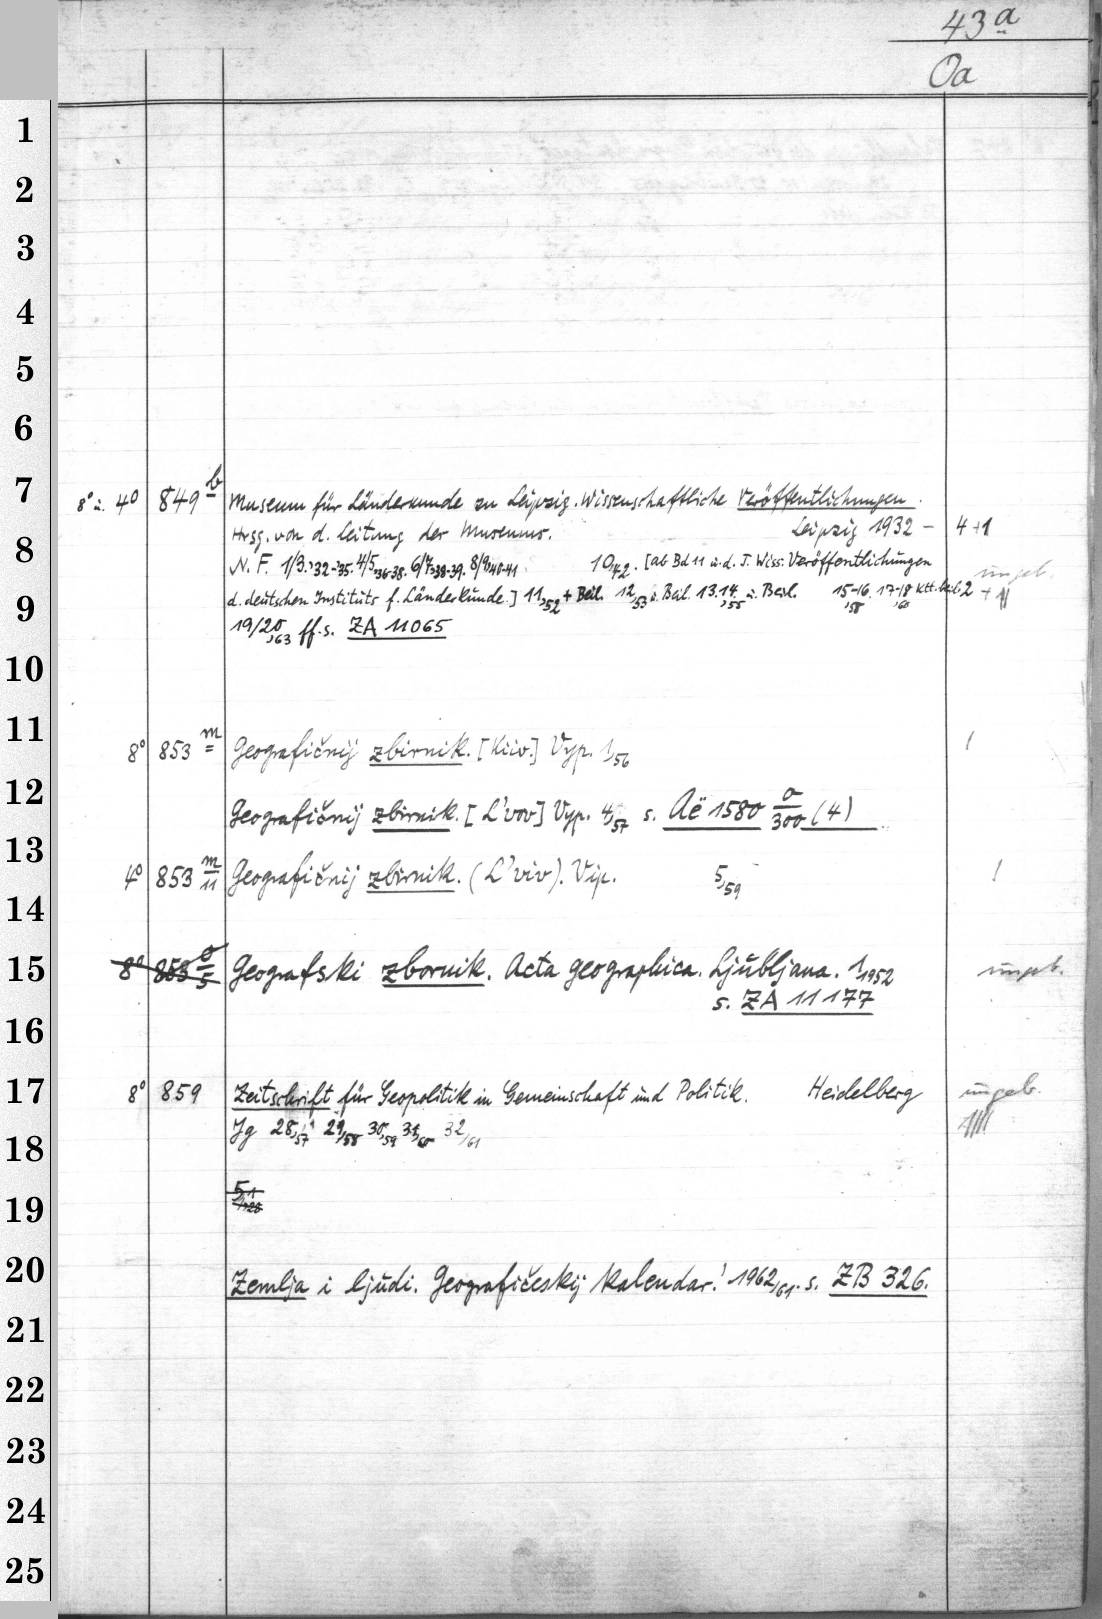 43 a
Oa
1
2
3
4
5
6
7
8° u. 4° 849 b Museum für Länderkunde zu Leipzig. Wissenschaftliche Veröffentlichungen.
Hrsg. von d. Leitung der Museums. Leipzig 1932 – 4 + 1
8
N. F. 1/3.'32-'35. 4/5,36-38. 6/7,38-39. 8/9,40-41 10,42. [ab Bd 11 u. d. T. Wiss. Veröffentlichungen ungeb.
9
d. deutschen Instituts f. Länderkunde.] 11,52 + Beil. 12,53 u. Beil. 13.14,55 u. Beil. 15-16,58 17-18,60 Ktt. beil. 2
19/20,63 ff. s. ZA 11065
10
11
8° 853 m Geografičnij zbirnik. [Kiiv.] Vyp. 1,56 1
12
Geografičnij zbirnik. [L'vov] Vyp. 4,57 s. Aë 1580 a/300 (4)
13
4° 853 m/11 Geografičnij zbirnik. (L'viv). Vip. 5,59 1
14
15
8° 853 o/5 Geografski zbornik. Acta geographica. Ljubljana. 1,1952 ungeb.
s. ZA 11 177
16
17
8° 859 Zeitschrift für Geopolitik in Gemeinschaft und Politik. Heidelberg ungeb.
Jg 28,57 29,58 30,59 31,60 32,61
18
19
20
Zemlja i ljudi. Geografičeskij kalendar.' 1962,61. s. ZB 326.
21
22
23
24
25